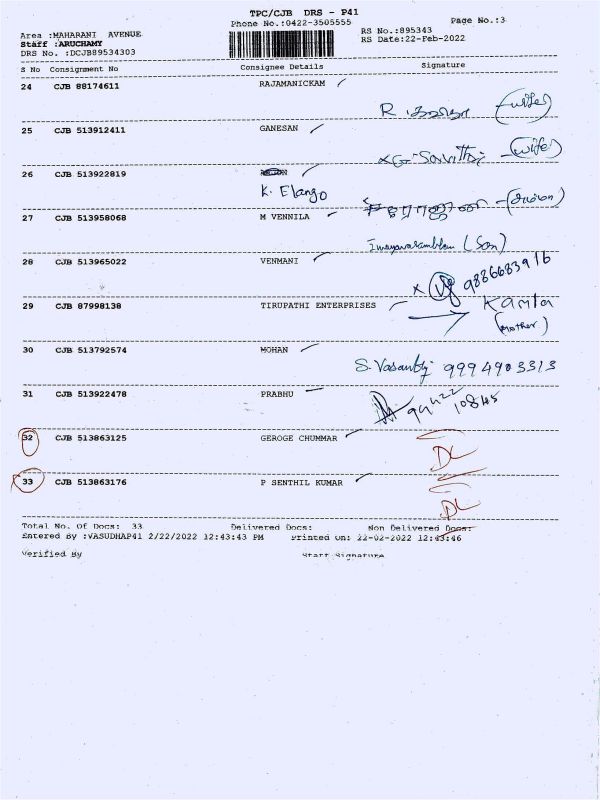 TPC/CJB DRS - P41
Phone No.:0422-3505555
Page No.:3
Area :MAHARANI AVENUE
Staff :ARUCHAMY
DRS No. :DCJB89534303
RS No.:895343
RS Date:22-Feb-2022
S No Consignment No Consignee Details Signature
24 CJB 88174611 RAJAMANICKAM
R (wife)
25 CJB 513912411 GANESAN
(wife)
26 CJB 513922819
K. Elango
27 CJB 513958068 M VENNILA
(Son)
28 CJB 513965022 VENMANI
x 9886683916
29 CJB 87998138 TIRUPATHI ENTERPRISES
Kamla
(mother)
30 CJB 513792574 MOHAN
S. Vasanthi 9994903313
31 CJB 513922478 PRABHU
99422 10845
32 CJB 513863125 GEROGE CHUMMAR
DL
33 CJB 513863176 P SENTHIL KUMAR
DL
Total No. Of Docs: 33 Delivered Docs: Non Delivered Docs:
Entered By :VASUDHAP41 2/22/2022 12:43:43 PM Printed On: 22-02-2022 12:43:46
Verified By Staff Signature